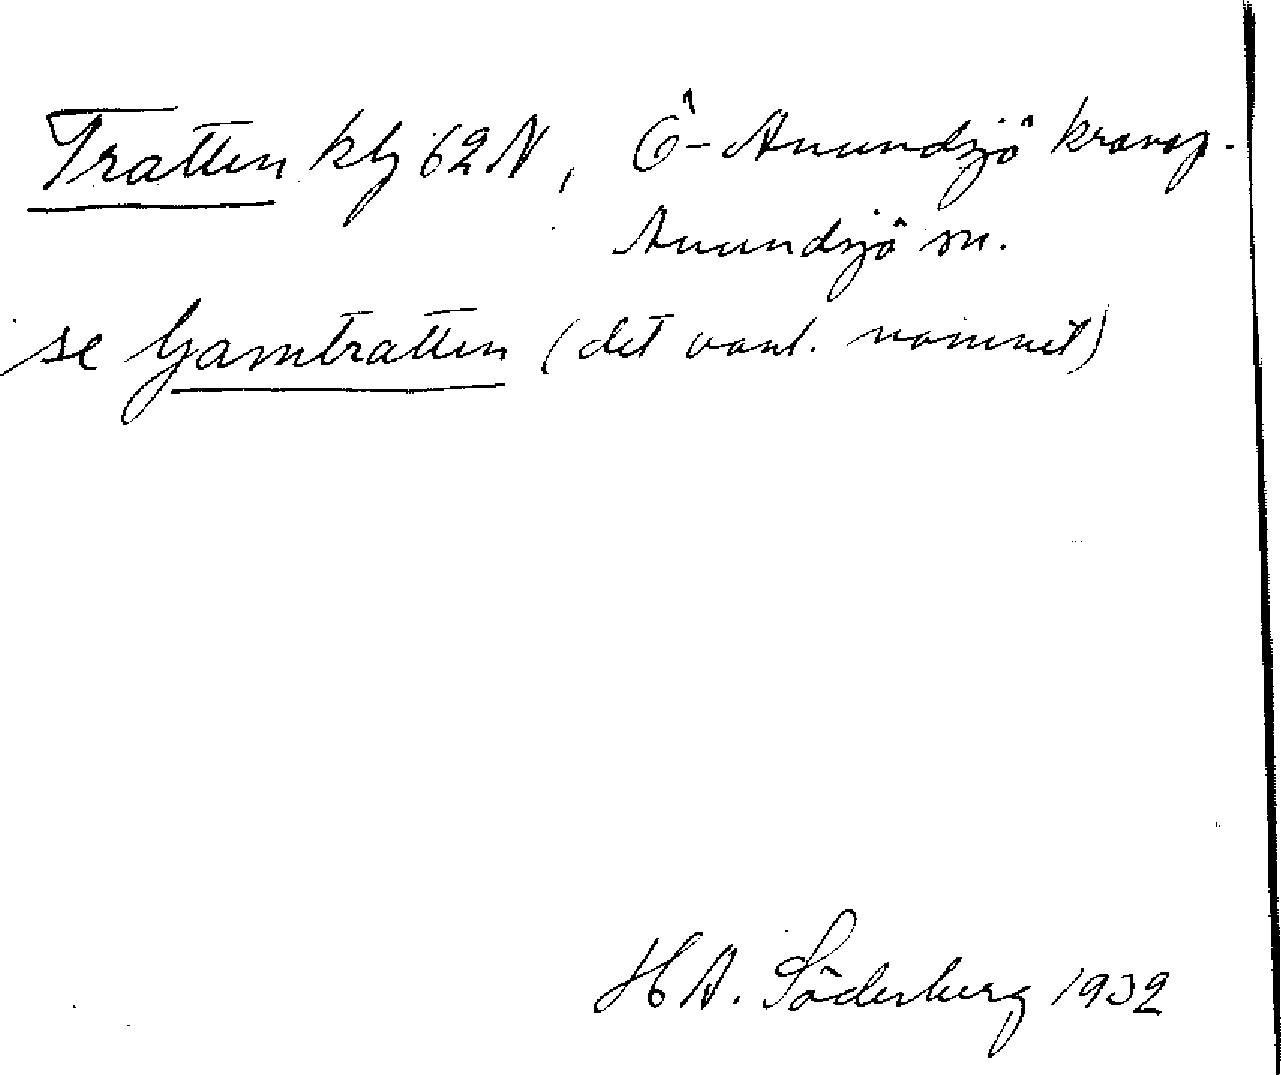 Tratten kbl 62 N, Ö-Anundsjö kronop.
Anundsjö sn.
se Gamtratten (det vanl. namnet)
H A. Söderberg 1932